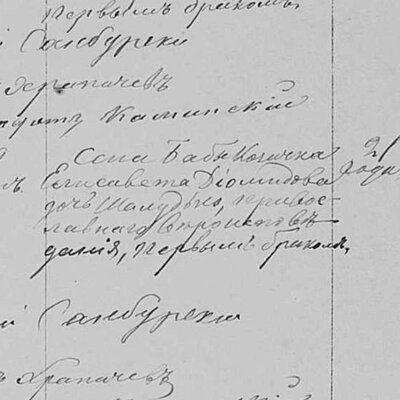 первымъ бракомъ
Самбурскій
Храпачевъ
Каминскій
Села Бабы Козачка 21
Елисавета Діомидова года
дочь Шалудько, правос-
лавнаго вѣроисповѣ-
данія, первымъ бракомъ,
Самбурскій
Храпачевъ